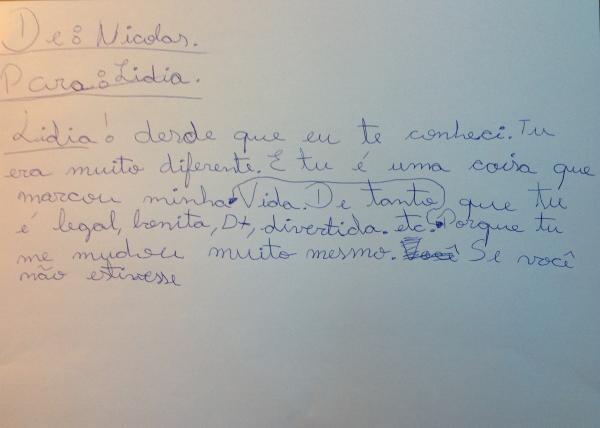 De: Nicolas.
Para: Lidia.
Lidia! desde que eu te conheci. Tu
era muito diferente. E tu é uma coisa que
marcou minha Vida. De tanto que tu
é legal, bonita, D+, divertida. etc. Porque tu
me mudou muito mesmo. Se você
não estivesse